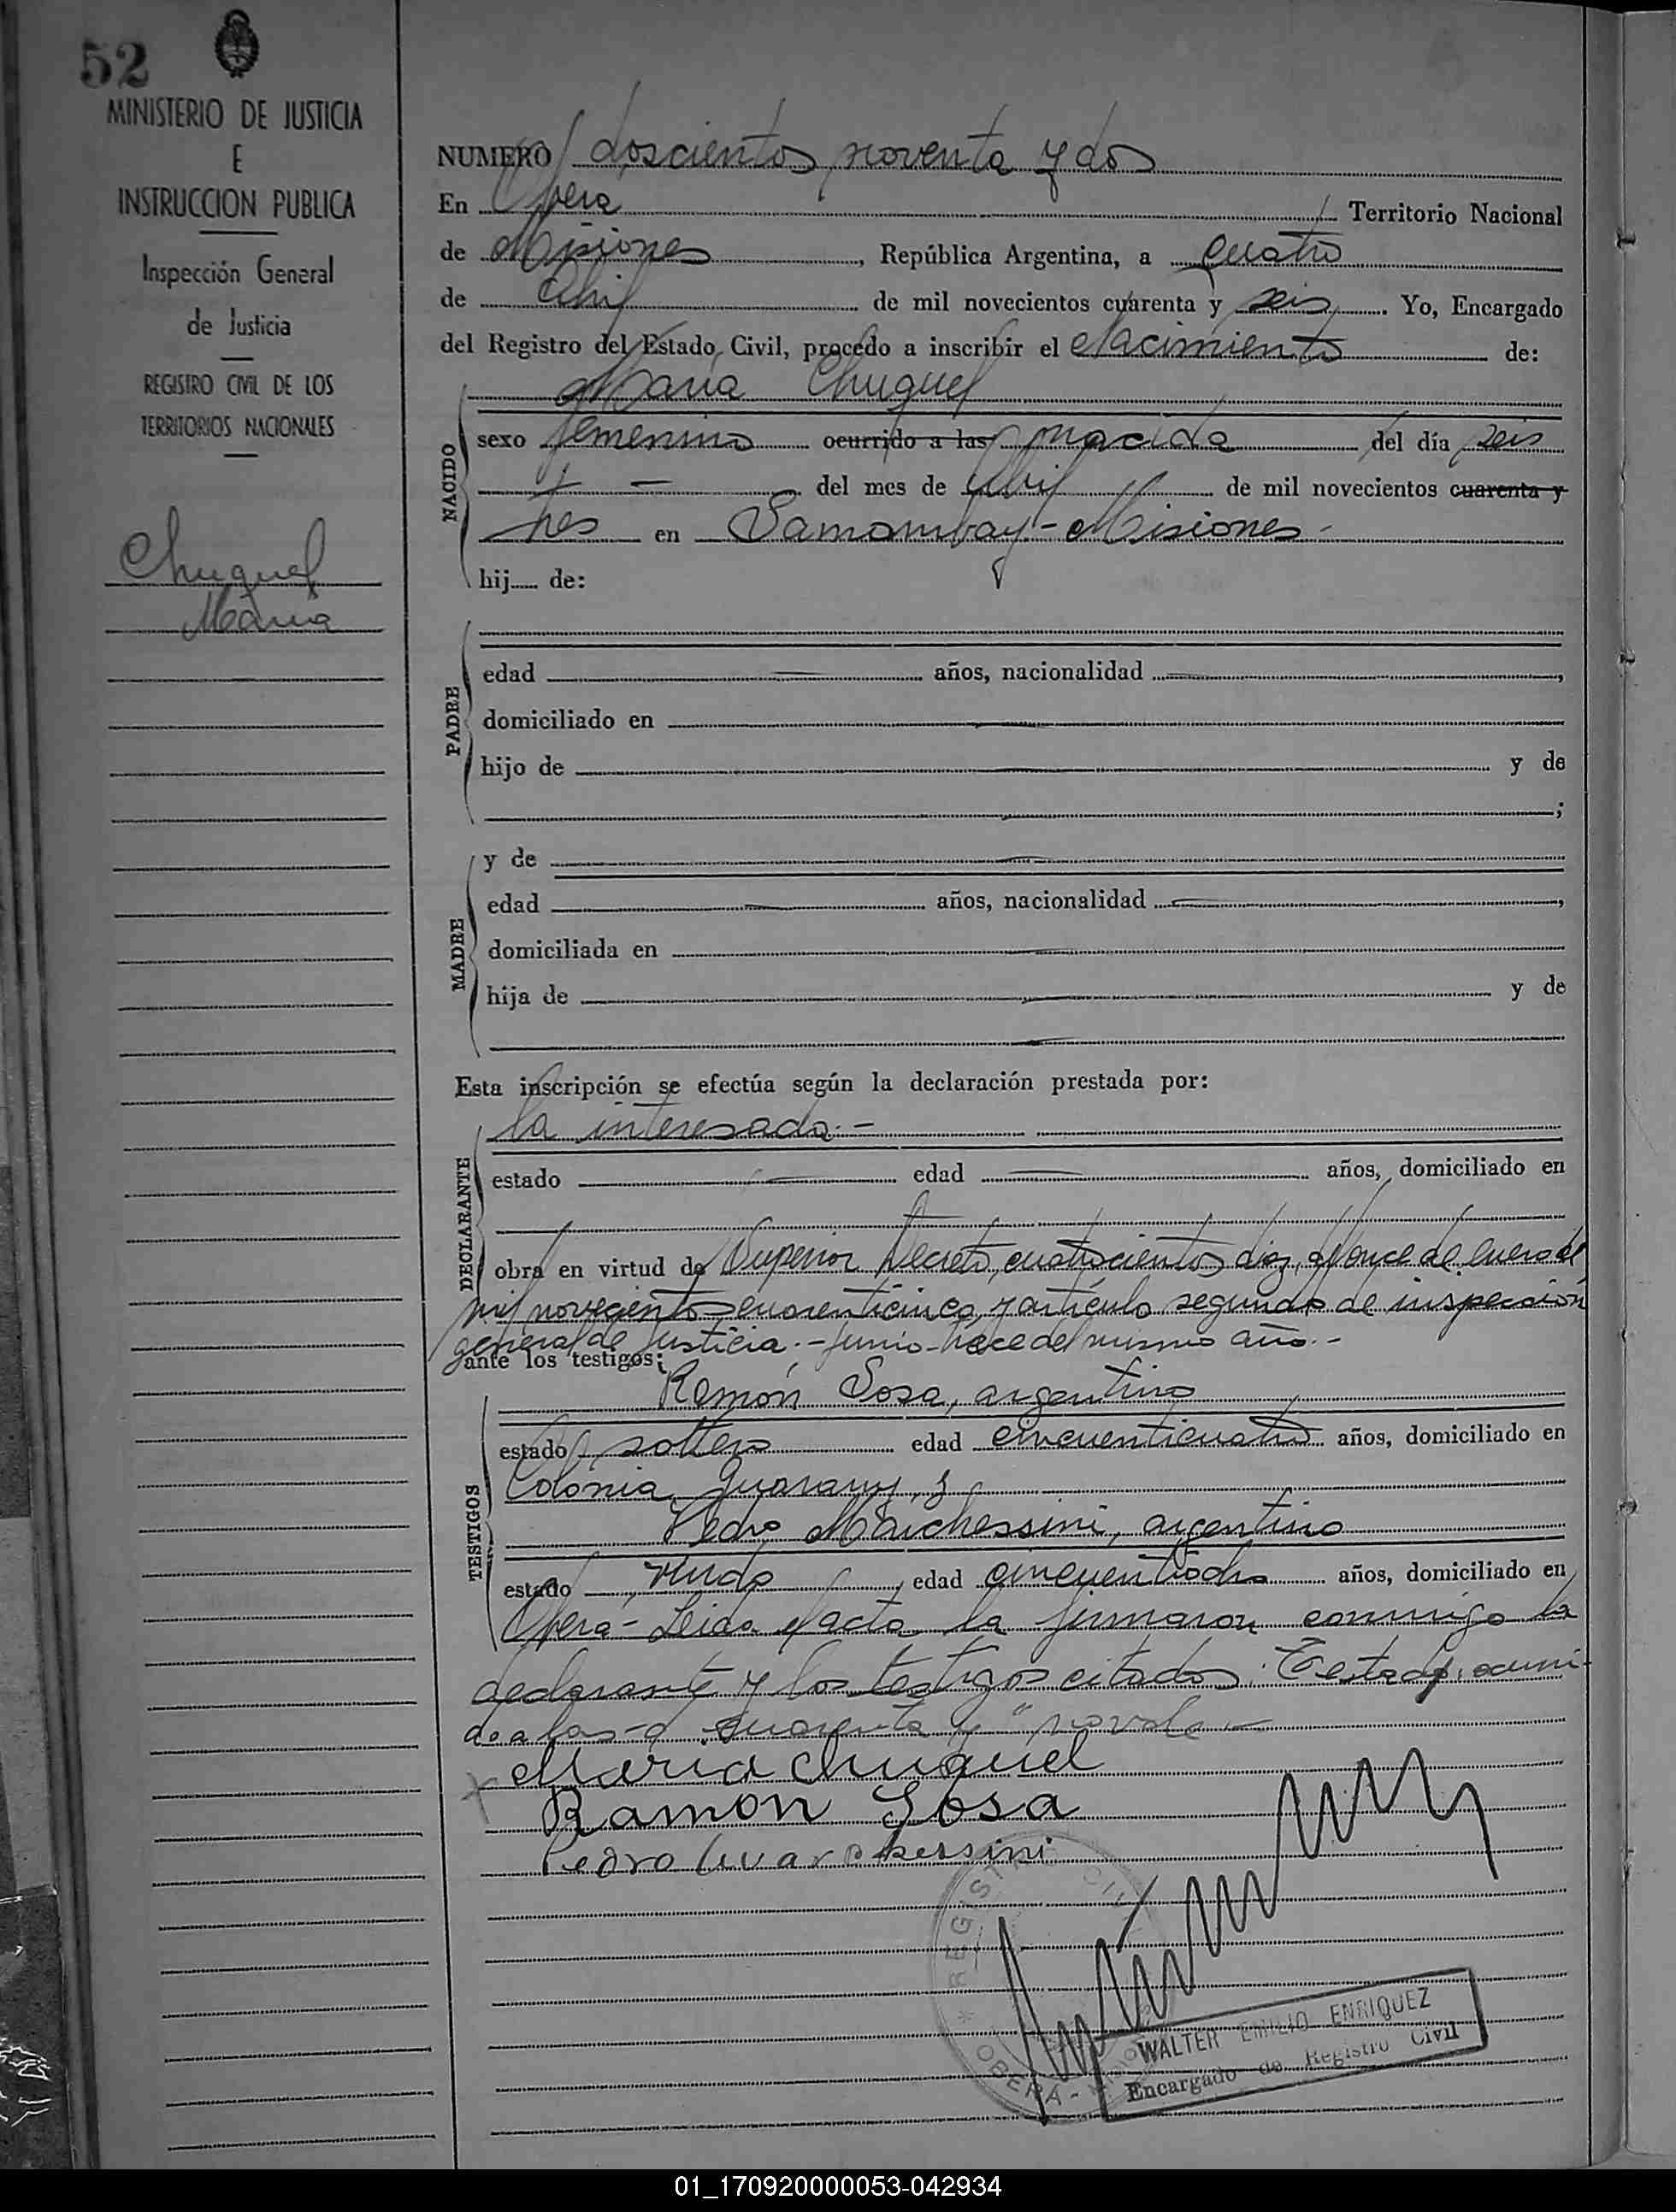 52
MINISTERIO DE JUSTICIA
E
INSTRUCCION PUBLICA
Inspección General
de Justicia
REGISTRO CIVIL DE LOS
TERRITORIOS NACIONALES
Chuquel
María
NUMERO doscientos noventa y dos
En Oberá Territorio Nacional
de Misiones, República Argentina, a cuatro
de Abril de mil novecientos cuarenta y seis. Yo, Encargado
del Registro del Estado Civil, procedo a inscribir el Nacimiento de:
María Chuquel
NACIDO
sexo femenino ocurrido a las nacida del día seis
del mes de Abril de mil novecientos cuarenta y
tres en Samambay - Misiones -
hij..... de:
PADRE
edad años, nacionalidad ,
domiciliado en
hijo de y de
;
MADRE
y de
edad años, nacionalidad ,
domiciliada en
hija de y de
Esta inscripción se efectúa según la declaración prestada por:
DECLARANTE
la interesada.-
estado edad años, domiciliado en
obra en virtud de Superior Decreto, cuatrocientos diez, once de enero de
mil novecientos cuarenticinco, y artículo segundo de inspección
general de Justicia.- Junio trece del mismo año.-
ante los testigos:
TESTIGOS
Ramón Sosa, argentino
estado soltero edad cincuenticuatro años, domiciliado en
Colonia Guarany, y
Pedro Marchessini, argentino
estado viudo edad cincuentiocho años, domiciliado en
Oberá - Leida el acta la firmaron conmigo la
declarante y los testigos citados. Testado: ocurri-
do a las - cuarenta y " no vale -
María Chuquel
Ramon Sosa
Pedro Marchessini
REGISTRO CIVIL
OBERA -
WALTER EMILIO ENRIQUEZ
Encargado de Registro Civil
01_170920000053-042934